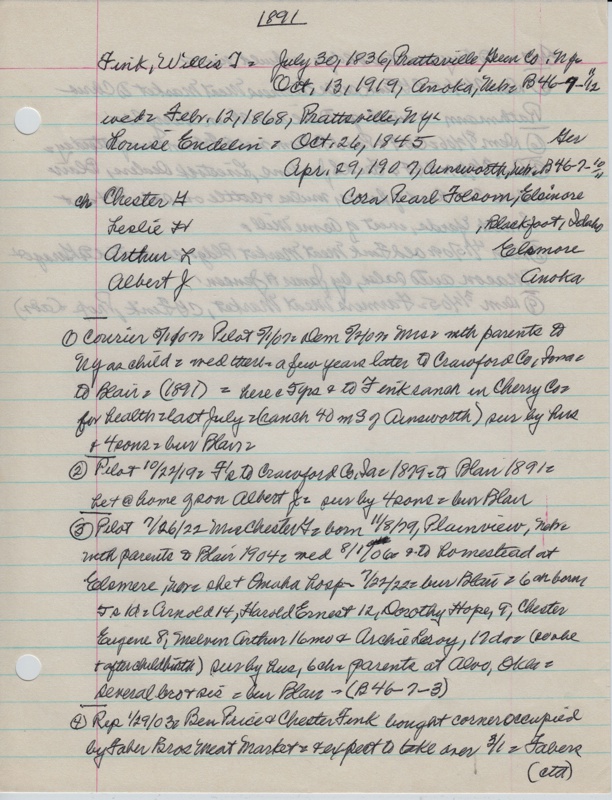 1891
Fink, Willis T = July 30, 1836, Prattsville, Green Co, Ny=
Oct, 13, 1919, Anoka, Neb= B46-7-9/12
wed= Febr. 12, 1868, Prattsville, Ny=
Louise Endelin = Oct. 26, 1845 Ger
Apr. 29, 1907, Ainsworth, Neb= B46-7-10/11
ch Chester G Cora Pearl Folsom, Elsinore
Leslie H Blackfoot, Idaho
Arthur L Elsmore
Albert J. Anoka
① Courier 5/1/07= Pilot 5/1/07= Dem 5/2/07= Mrs= with parents to
Ny as child= wed there= a few years later to Crawford Co, Iowa=
to Blair= (1891) = here 5 yrs & to Fink ranch in Cherry Co=
for health= last July= (ranch 40 m S of Ainsworth) sur by hus
& 4 sons= bur Blair=
② Pilot 10/22/19= F's to Crawford Co, Ia= 1879= to Blair 1891=
he + @ home of son Albert J= sur by 4 sons= bur Blair
③ Pilot 7/26/22 Mrs Chester G= born 11/8/79, Plainview, Neb=
with parents to Blair 1904= wed 8/1/06= & to homestead at
Elsmere, Neb= she + Omaha hosp- 7/22/22= bur Blair= 6 ch born
5s 1d= Arnold 14, Harold Ernest 12, Dorothy Hope, 9, Chester
Eugene 8, Melvin Arthur 16 mo & Archie Leroy, 17 da=
+ after childbirth) sur by hus, 6 ch= parents at Alvo, Okla=
several bro & sis = bur Blair - (B46-7-3)
④ Rep 1/29/03= Ben Price & Chester Fink bought corner occupied
by Faber Bros' Meat Market= & expect to take over 3/1= Fabers
(ctd)